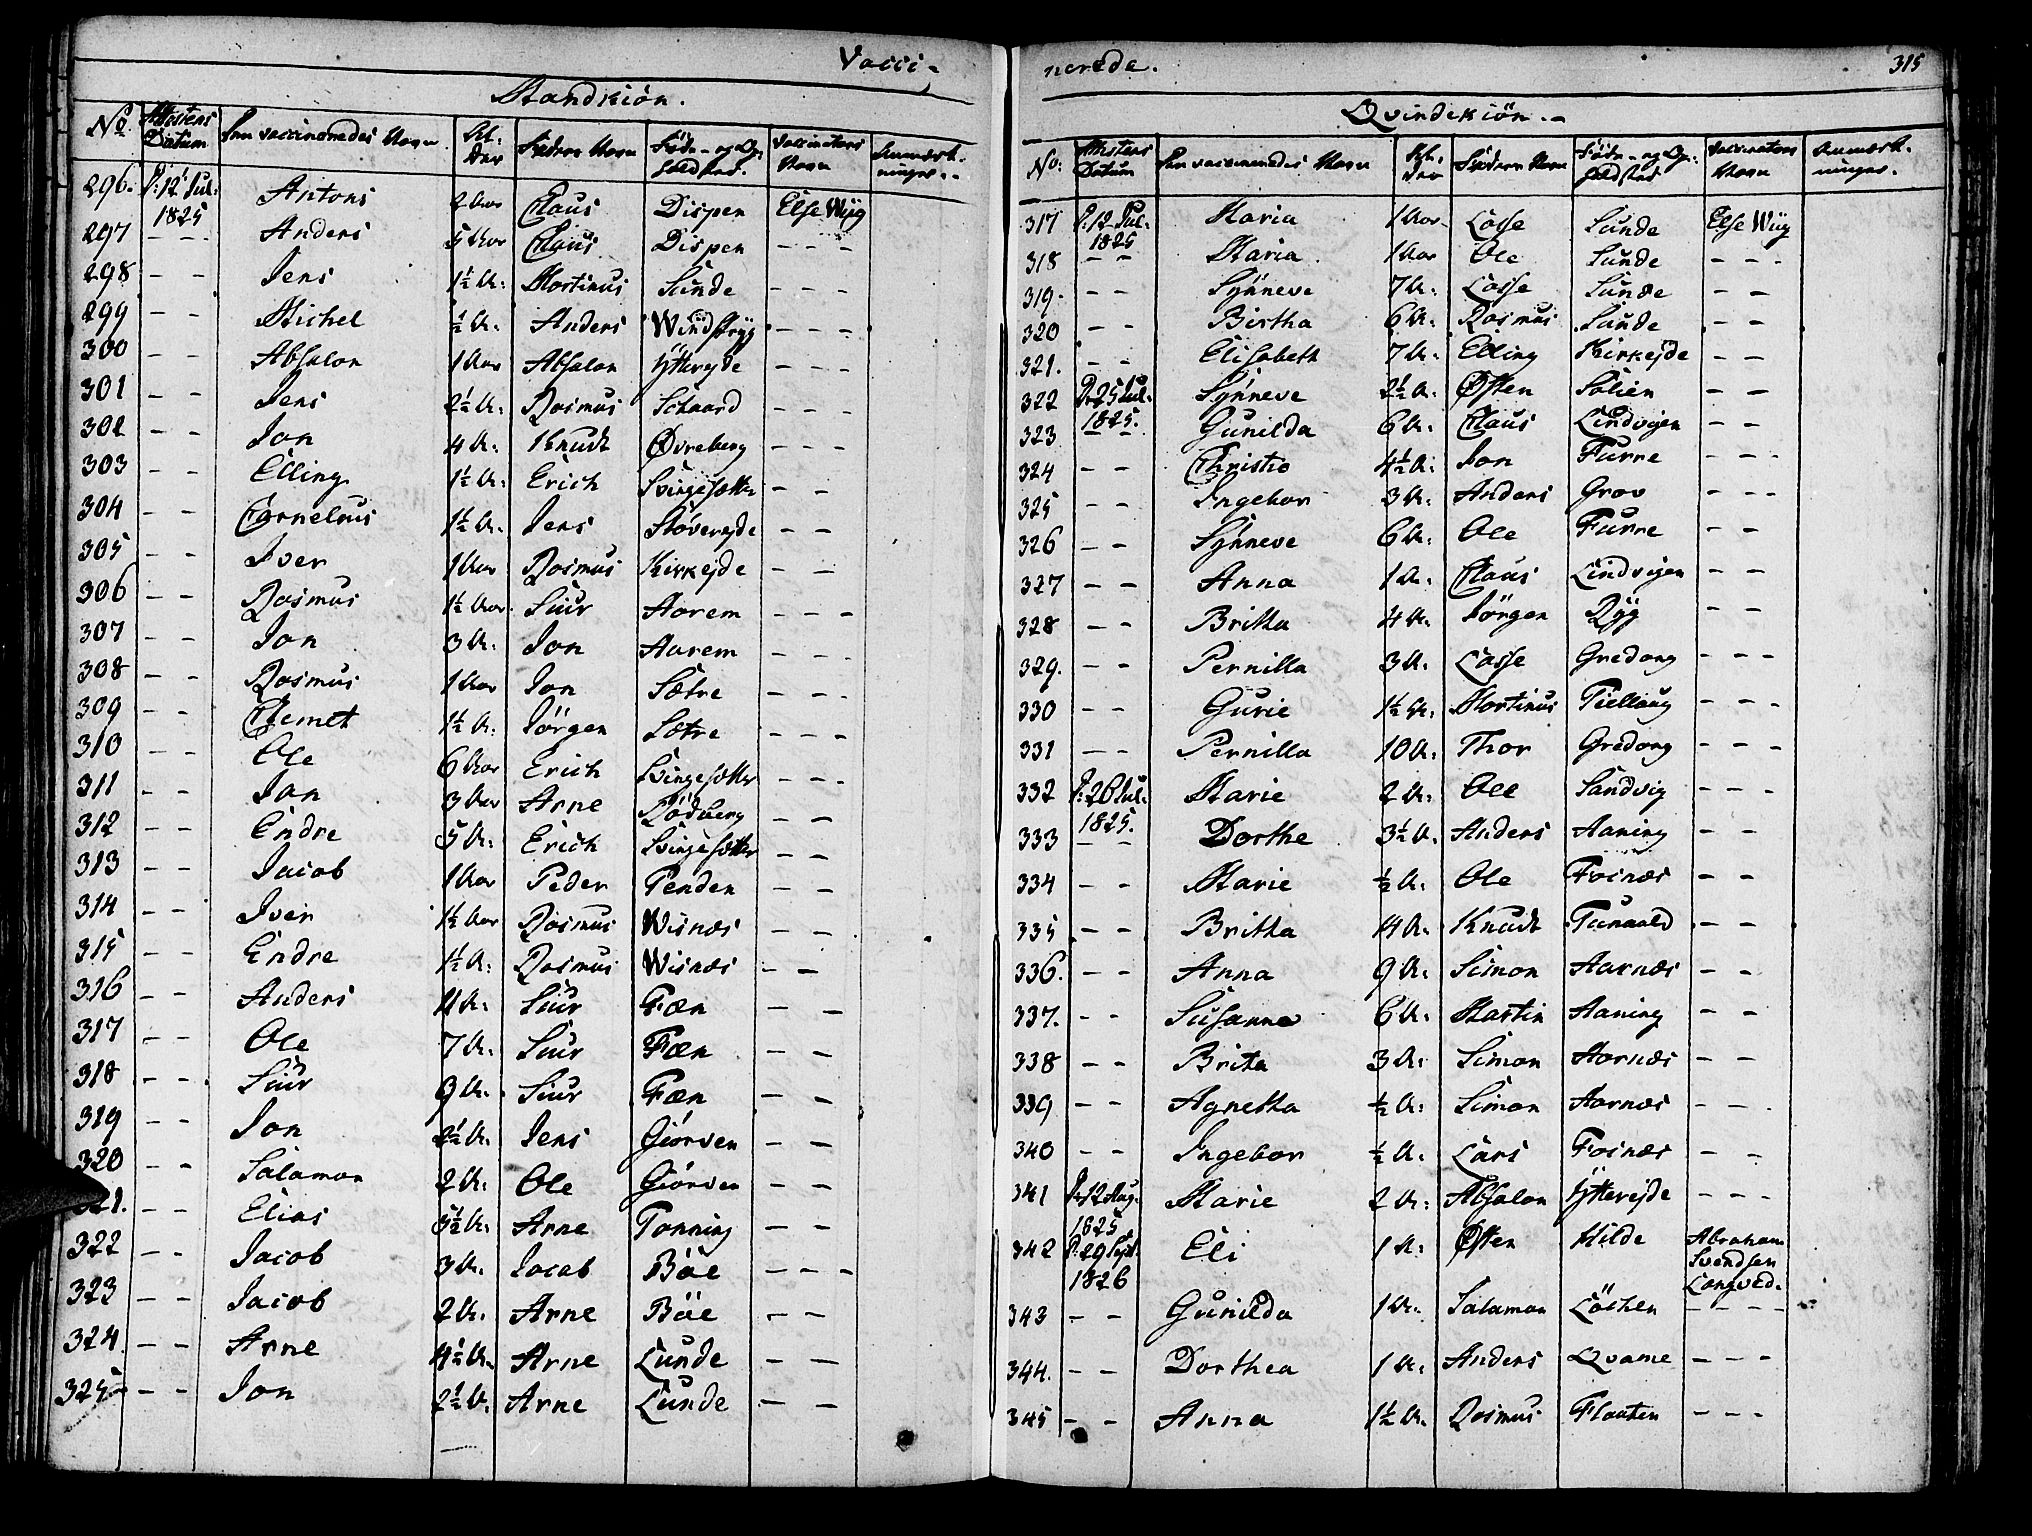 Vacci-
Mandkiøn.
No. Attestens Datum Den vaccineredes Navn Al-der Fadrens Navn Føde- og Op-holdsted. Vaccinators Navn Anmærk-ninger.
296. D: 12 Jul: 1825 Antoni 2 Aar Claus Dispen Else Wiig
297 - - Anders 5 Aar Claus Dispen - - -
298 - - Jens 1½ A: Mortinus Sunde - - -
299 - - Michel ½ A: Anders Windstryg - - -
300 - - Absalon 1 Aar Absalon Ytterejde - - -
301 - - Jens 2½ A: Rasmus Schaard - - -
302 - - Jon 4 A: Knudt Øvreberg - - -
303 - - Elling 1½ A: Erich Svingesætter - -
304 - - Cornelius 1½ A: Jens Støverejde - -
305 - - Iver 1 Aar Rasmus Kirkejde - -
306 - - Rasmus 1½ Aar Siur Aarem - - -
307 - - Jon 3 A: Jon Aarem - - -
308 - - Rasmus 1 Aar Jon Sætre - - -
309 - - Clemet 1½ A: Jörgen Sætre - - -
310 - - Ole 6 Aar Erich Svingesætter - - -
311 - - Jon 3 Aar Arne Rödberg - -
312 - - Endre 5 A: Erich Svingesætter - -
313 - - Jacob 1 Aar Peder Tenden - -
314 - - Iver 1½ Aar Rasmus Wisnæs - -
315 - - Endre 1½ A: Rasmus Wisnæs - -
316 - - Anders 11 A: Siur Fæn - -
317 - - Ole 7 A: Siur Fæn - -
318 - - Siur 9 A: Siur Fæn - -
319 - - Jon 2½ A: Jens Giörven - -
320 - - Salamon 2 A: Ole Giörven - -
321. - - Elias 3½ A: Arne Tonning - -
322 - - Jacob 3 A: Jacob Böe - - -
323 - - Jacob 2 A: Arne Böe - -
324. - - Arne 4½ A: Arne Lunde - -
325 - - Jon 2½ A: Arne Lunde - -
nerede. 315
Qvindekiön.
No: Attestens Datum Den vaccineredes Navn Al-der Fadrens Navn Føde- og Op-holdsted Vaccinators Navn Anmærk-ninger.
317 D: 12 Jul: 1825 Maria 1 Aar Lasse Sunde Else Wiig
318 - - Maria 1 Aar Ole Sunde - - -
319. - - Synneve 7 A: Lasse Sunde - -
320 - - Birtha 6 A: Rasmus Sunde - -
321. - - Elisabeth 7 A: Elling Kirkejde - -
322 D: 25 Jul: 1825. Synneve 2½ A: Østen Solien - -
323 - - Gunilda 6 A: Claus Lindvigen - -
324 - - Christio 4½ A: Jon Furre - - -
325 - - Ingebor 3 A: Anders Grov - - -
326 - - Synneve 6 A: Ole Furre - -
327 - - Anna 1 A: Claus Lindvigen - -
328 - - Britha 4 A: Jörgen Ryg - -
329. - - Pernilla 3 A: Lasse Gredong - - -
330 - - Gurie 1½ A: Mortinus Tiellaug - - -
331 - - Pernilla 10 A: Thor Gredong - - -
332 D: 26 Jul: 1825. Marie 2 A: Ole Sandvig - - -
333 - - Dorthe 3½ A: Anders Aaning - - -
334 - - Marie ½ A: Ole Fosnæs - -
335 - - Britha 14 A: Knudt Tunaald - -
336. - - Anna 9 A: Simon Aarnæs - -
337. - - Susanne 6 A: Martin Aaning - -
338 - - Brita 3 A: Simon Aarnæs - -
339 - - Agnetha ½ A: Simon Aarnæs - - -
340 - - Ingebor ½ A: Lars Fosnæs - -
341 D: 12 Aug: 1825 Marie 2 A: Absalon Ytterejde - - -
342 D: 29 Sept: 1826 Eli 1 A: Østen Hilde Abraham Svendsen Langved.
343 - - Gunilda 1 A: Salamon Löchen - - - -
344. - - Dorthea 1 A: Anders Qvame - - -
345 - - Anna 1½ A: Rasmus Flaaten - - -